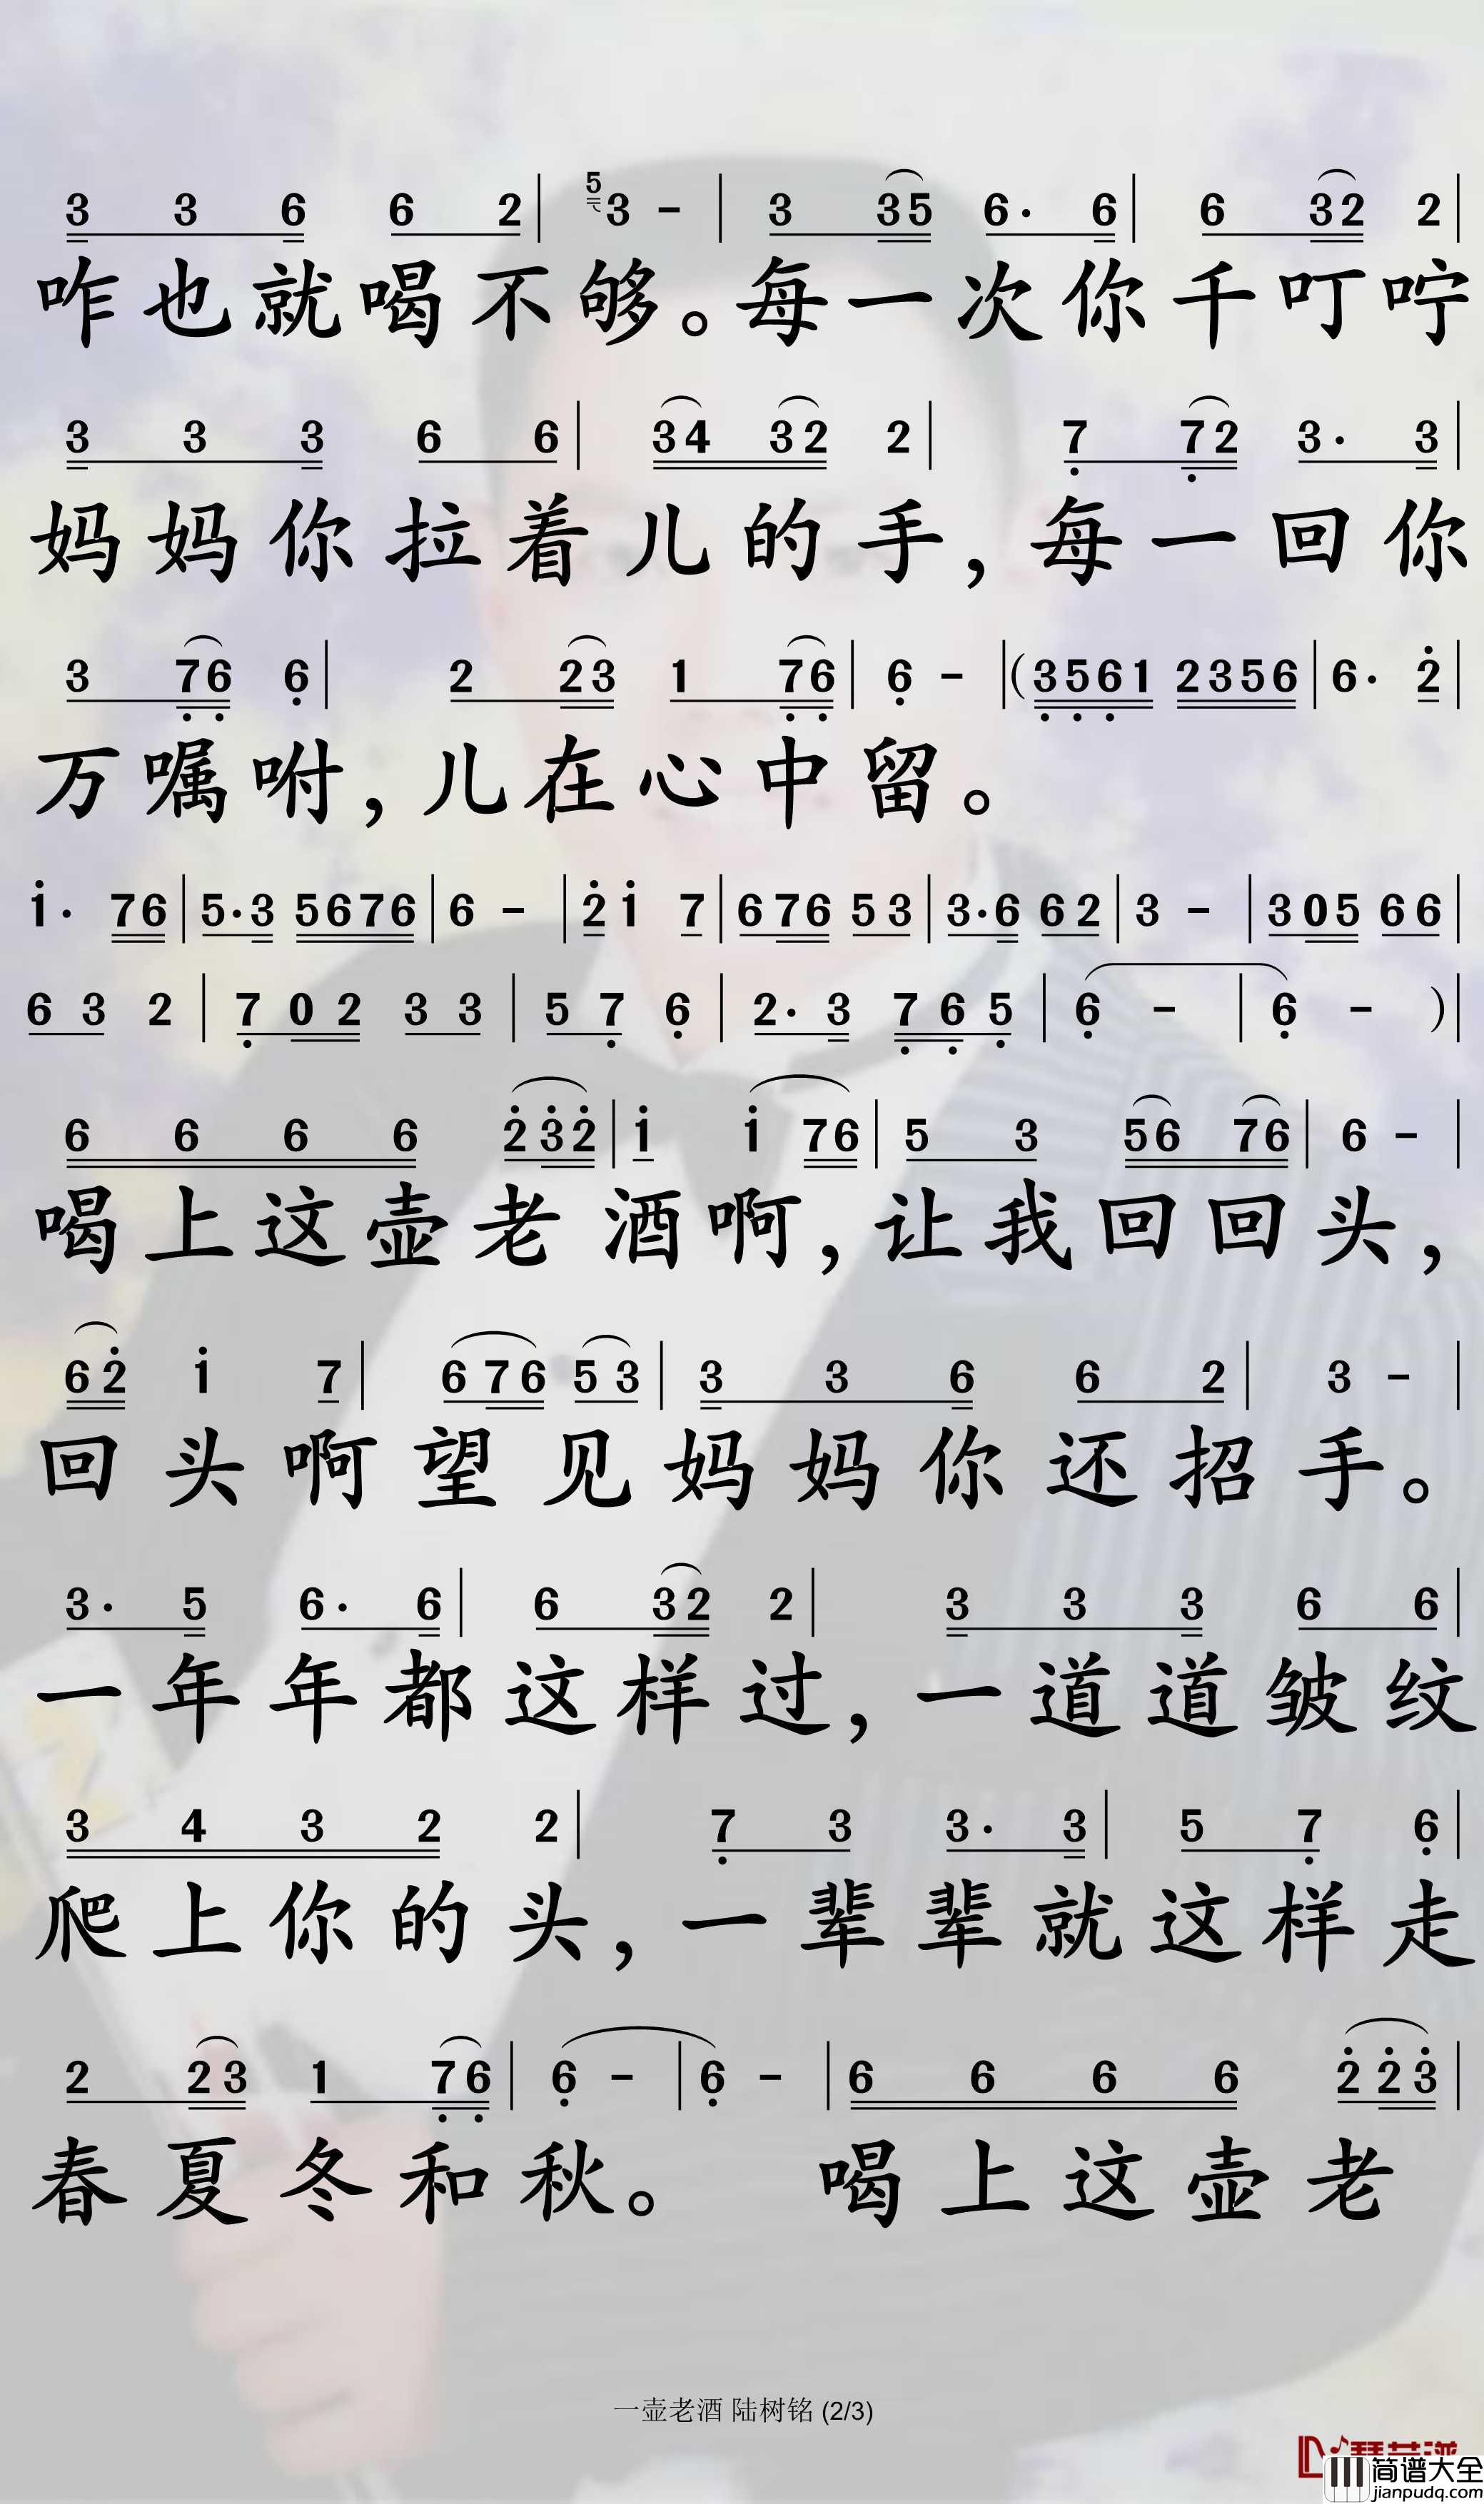 3 3 6 6 2 | 5 3 - | 3 3 5 6 · 6 | 6 3 2 2 |
咋也就喝不够。每一次你千叮咛
3 3 3 6 6 | 3 4 3 2 2 | 7 7 2 3 · 3 |
妈妈你拉着儿的手，每一回你
3 7 6 6 | 2 2 3 1 7 6 | 6 - | ( 3 5 6 1 2 3 5 6 | 6 · 2 |
万嘱咐，儿在心中留。
1 · 7 6 | 5 · 3 5 6 7 6 | 6 - | 2 1 7 | 6 7 6 5 3 | 3 · 6 6 2 | 3 - | 3 0 5 6 6 |
6 3 2 | 7 0 2 3 3 | 5 7 6 | 2 · 3 7 6 5 | 6 - | 6 - ) |
6 6 6 6 2 3 2 | 1 1 7 6 | 5 3 5 6 7 6 | 6 - |
喝上这壶老酒啊，让我回回头，
6 2 1 7 | 6 7 6 5 3 | 3 3 6 6 2 | 3 - |
回头啊望见妈妈你还招手。
3 · 5 6 · 6 | 6 3 2 2 | 3 3 3 6 6 |
一年年都这样过，一道道皱纹
3 4 3 2 2 | 7 3 3 · 3 | 5 7 6 |
爬上你的头，一辈辈就这样走
2 2 3 1 7 6 | 6 - | 6 - | 6 6 6 6 2 2 3 |
春夏冬和秋。喝上这壶老
一壶老酒 陆树铭 (2/3)
简谱大全
jianpudq.com